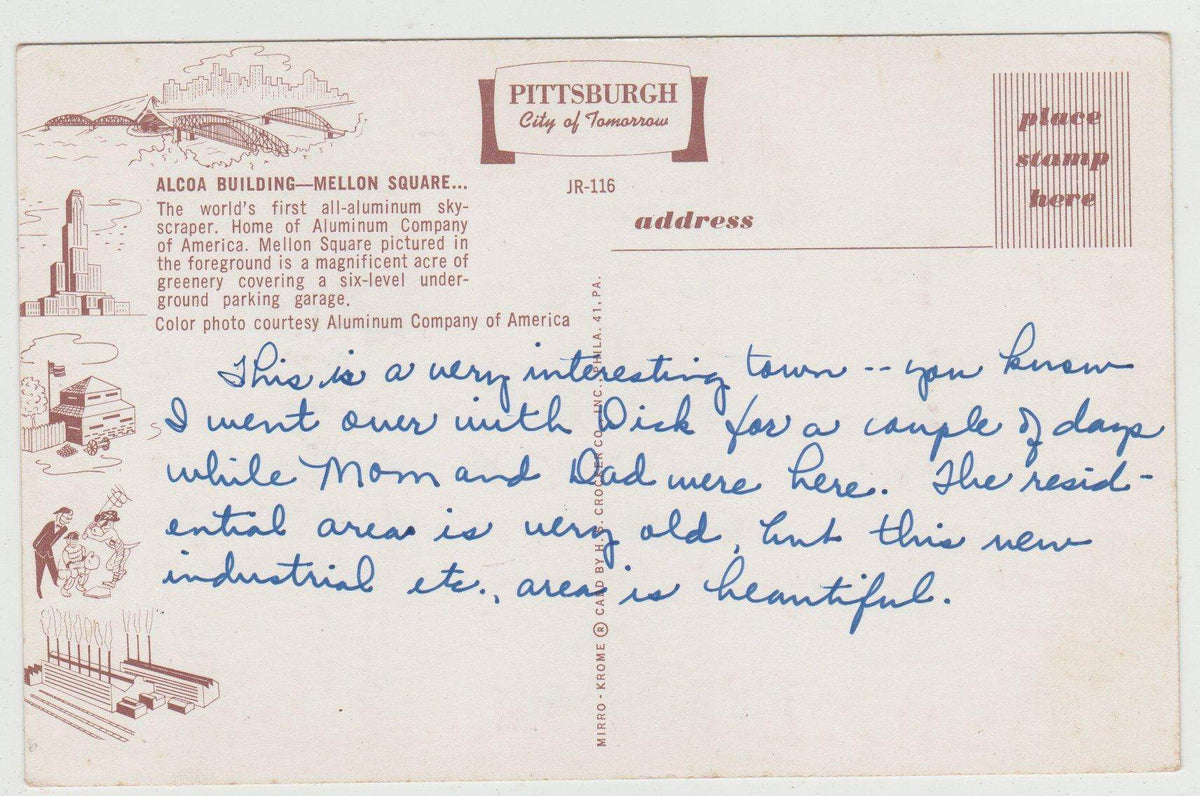 PITTSBURGH
City of Tomorrow
place
stamp
here
JR-116
address
ALCOA BUILDING—MELLON SQUARE...
The world's first all-aluminum sky-
scraper. Home of Aluminum Company
of America. Mellon Square pictured in
the foreground is a magnificent acre of
greenery covering a six-level under-
ground parking garage.
Color photo courtesy Aluminum Company of America
This is a very interesting town -- you know
I went over with Dick for a couple of days
while Mom and Dad were here. The resid-
ential area is very old, but this new
industrial etc., area is beautiful.
MIRRO-KROME ® CARD BY H. S. CROCKER CO., INC., PHILA. 41, PA.